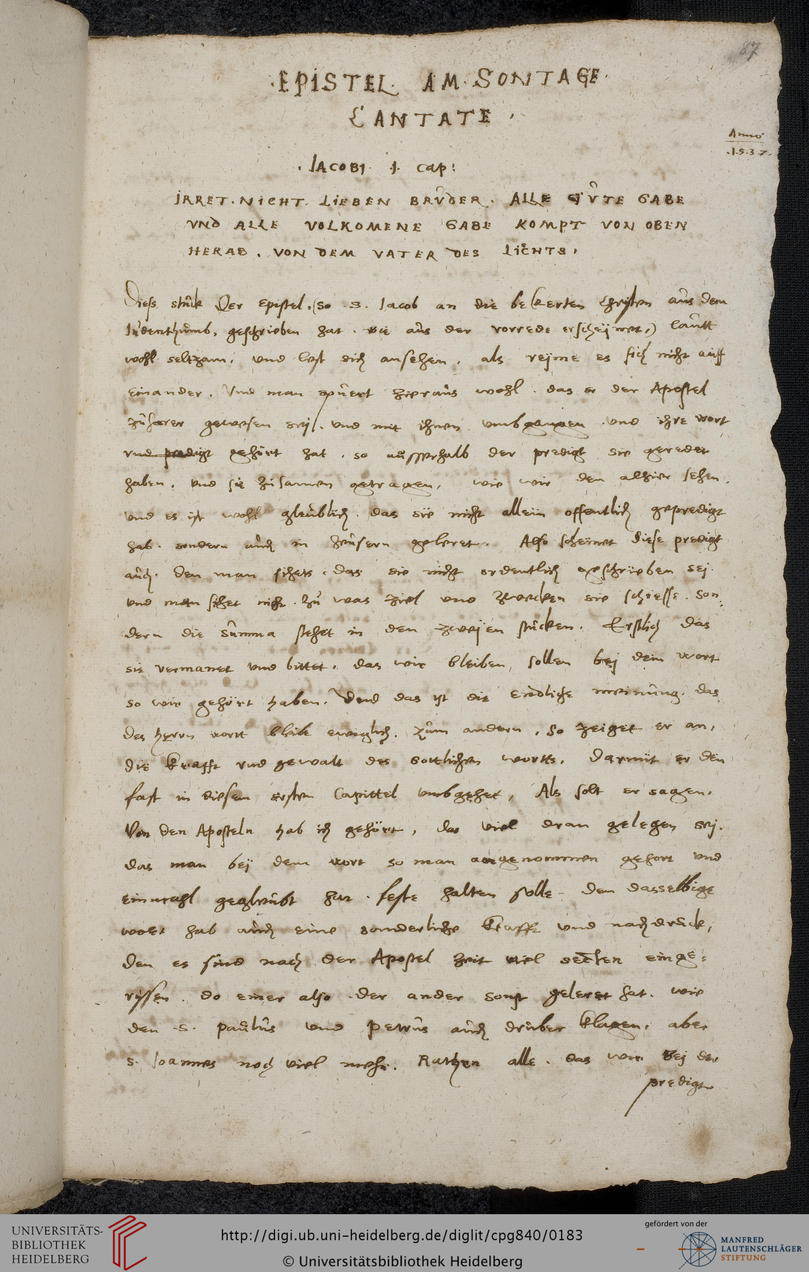 87
EPISTEL AM SONTAGE
CANTATE
Anno
.1.5.3.7.
.JACOBJ J. Cap:
JRRET. NICHT LIEBEN BRŮDER. ALLE GŮTE GABE
VND ALLE VOLKOMENE GABE KOMPT VON OBEN
HERAB. VON DEM VATER DES LIECHTS.
Diess stůck Der Epistel, (so .S. Jacob an die bekerten Christen aůs dem
Jůdenthůmb, geschrieben hat. wie aůs der vorrede erscheijnet,) laůtt
wohl seltzam. vnd lest sich ansehen. als rejme es sich nicht aůff
einander. Vnd man spůert hieraůs wohl. das er der Apostel
zůhorer gewesen seij. vnd mit ihnen vmbgangen. vnd ihre wort
vnd predigt gehört hat. so aůsserhalb der predigt sie geredet
haben. vnd sie zůsamen getragen. wie wir den alhier sehen.
vnd es ist wohl gleůblich. das sie nicht allein offentlich gepredigt
hab. sondern aůch in heůsern geleret. Also scheinet diese predigt
aůch. den man sihets. das sie nicht ordentlich geschrieben sej
vnd man sihet nicht. zů was ziel vnd zwecken sie schiesse. son:
dern die sůmma stehet in den zweijen stůcken. Erstlich das
sie vermanet vnd bittet. das wir bleiben sollen bej dem wort
so wir gehört haben. Vnd das ist die endliche meinůng. das
des herrn wortt bleibe ewiglich. zům andern, So zeiget er an,
die krafft vnd gewalt des gottlichen wortts. Darmit er den
fast in diesem ersten Capittel vmbgehet, Als solt er sagen.
Von den Aposteln hab ich gehört, das viel dran gelegen seij.
das man beij dem wort so man angenommen gehort vnd
einmahl geglaůbt hat. feste halten solle. Den dasselbige
wort hab aůch eine sonderliche krafft vnd nachdrůck,
den es sind nach der Apostel zeit viel secten einge:
rissen. do einer also. der ander sonst geleret hat. wie
den .S. paůlůs vnd Petrůs aůch drůber klagen. aber
S. Joannes noch viel mehr. Rathen alle. das wir bej der
predigt
UNIVERSITÄTS-
BIBLIOTHEK
HEIDELBERG
http://digi.ub.uni-heidelberg.de/diglit/cpg840/0183
© Universitätsbibliothek Heidelberg
gefördert von der
MANFRED
LAUTENSCHLÄGER
STIFTUNG